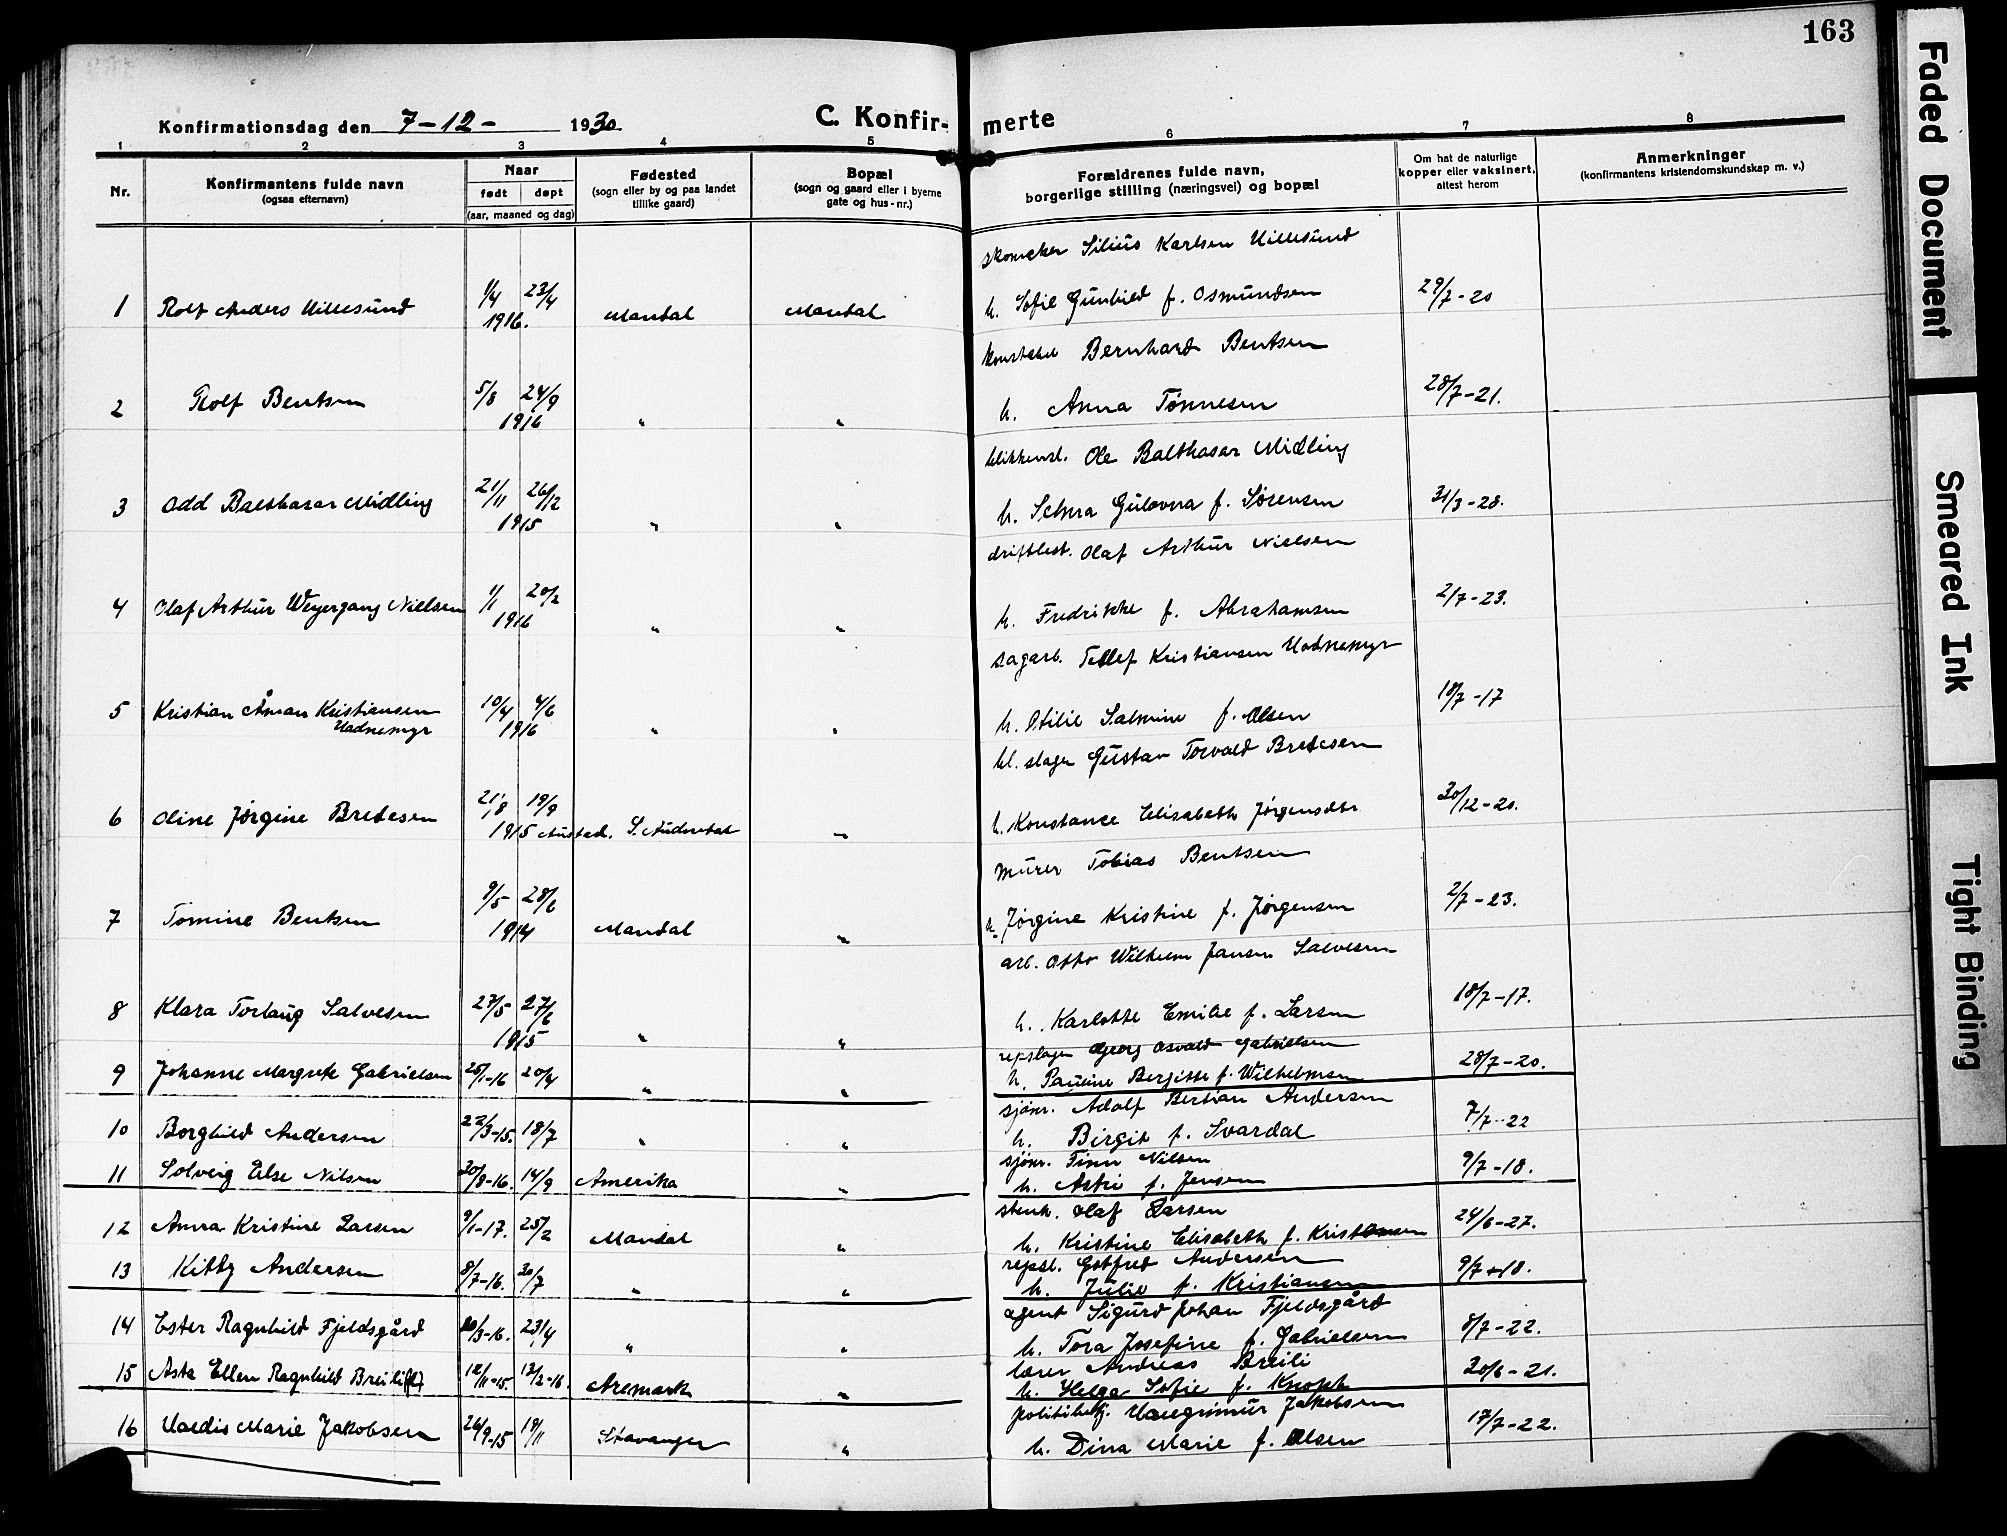 163
Konfirmationsdag den 7-12- 1930.
C. Konfir- merte
1 2 3 4 5 6 7 8
Nr.
Konfirmantens fulde navn
(ogsaa efternavn)
Naar
født døpt
(aar, maaned og dag)
Fødested
(sogn eller by og paa landet
tillike gaard)
Bopæl
(sogn og gaard eller i byerne
gate og hus-nr.)
Forældrenes fulde navn,
borgerlige stilling (næringsvei) og bopæl
Om hat de naturlige
kopper eller vaksinert,
attest herom
Anmerkninger
(konfirmantens kristendomskundskap m. v.)
skomaker Silius Karlsen Uillesund
1 Rolf Anders Uillesund 1/4 23/4 1916. Mandal Mandal h. Sofie Gunhild f. Osmundsen 29/7-20
konstabel Bernhard Bentsen
2 Rolf Bentsen 5/8 24/9 1916 " " h. Anna Tønnesen 28/7-21.
blikkensl. Ole Balthasar Midling
3 Odd Balthasar Midling 21/11 26/12 1915 " " h. Selma f. Sørensen 31/3-28.
Olaf Arthur Nielsen
4 Olaf Arthur Weyergang Nielsen 1/1 20/2 1916 " " h. Fredrikke f. Abrahamsen 2/7-23.
sagarb. Tellef Kristiansen Uodnemyr
5 Kristian Åman Kristiansen 10/4 4/6 1916 " " h. Otilie Salmine f. Olsen 18/7-17
Uadnemyr
bl. slager Gustav Torvald Bredesen
6 Oline Jørgine Bredesen 21/8 19/9 1915 Austad. S. Audnedal " h. Konstance Elisabeth Jørgensdtr 30/12-20.
murer Tobias Bentsen
7 Tomine Bentsen 9/5 28/6 1914 Mandal " h. Jørgine Kristine f. Jørgensen 2/7-23.
arb. Otto Wilhelm Jansen Salvesen
8 Klara Torlaug Salvesen 27/5 27/6 1915 " " h. Karlotte Emilie f. Larsen 18/7-17.
repslager Georg Osvald Gabrielsen
9 Johanne Margrete Gabrielsen 25/1-16 20/4 " " h. Pauline Bergitte f. Wilhelmsen 28/7-20.
sjøm. Adolf Bertian Andersen
10 Borghild Andersen 22/3-15. 18/7 " " h. Birgit f. Svardal 7/7-22
sjøm. Finn Nilsen
11 Solveig Else Nilsen 20/8-16. 14/9 Amerika " h. Astri f. Jensen 9/7-18.
stenh. Olaf Larsen
12 Anna Kristine Larsen 9/1-17. 25/2 Mandal " h. Kristine Elisabeth f. Kristensen 24/6-27.
repsl. Gotfred Andersen
13 Kitty Andersen 8/7-16. 30/7 " " h. Julie f. Kristiansen 9/7-18.
agent Sigurd Johan Fjeldsgård
14 Ester Ragnhild Fjeldsgård 20/3-16. 23/4 " " h. Tora Josefine f. Gabrielsen 8/7-22.
lærer Andreas Breili
15 Asta Ellen Ragnhild Breili 12/11-15. 13/2-16. Aremark " h. Helga Sofie f. Knoph 30/6-21.
politibetj. Jakobsen
16 Valdis Marie Jakobsen 26/9-15 19/11 Stavanger " h. Dina Marie f. Olsen 17/7-22.
Faded Document
Smeared Ink
Tight Binding